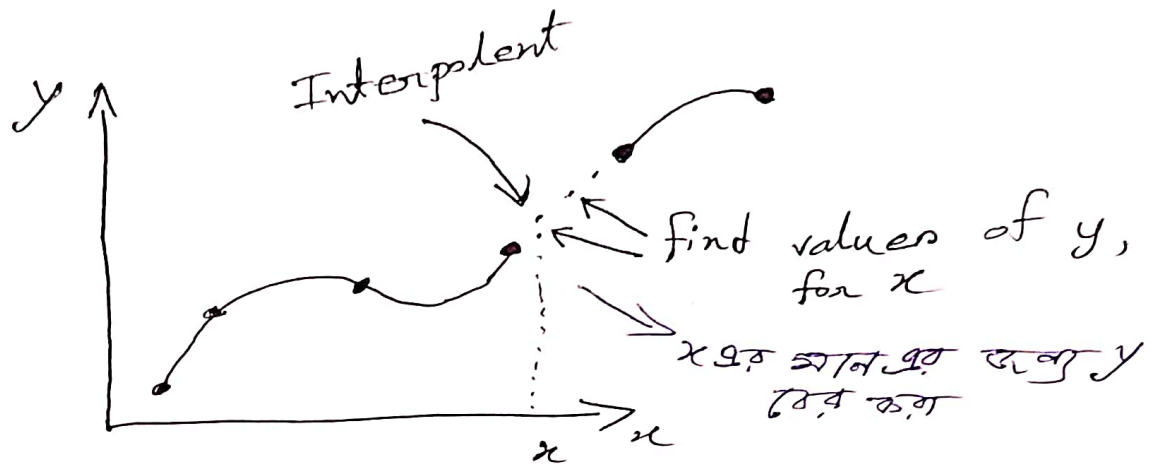 Interpolent
y
find values of y,
for x
x এর মানের এর জন্য y
বের করা
x
x